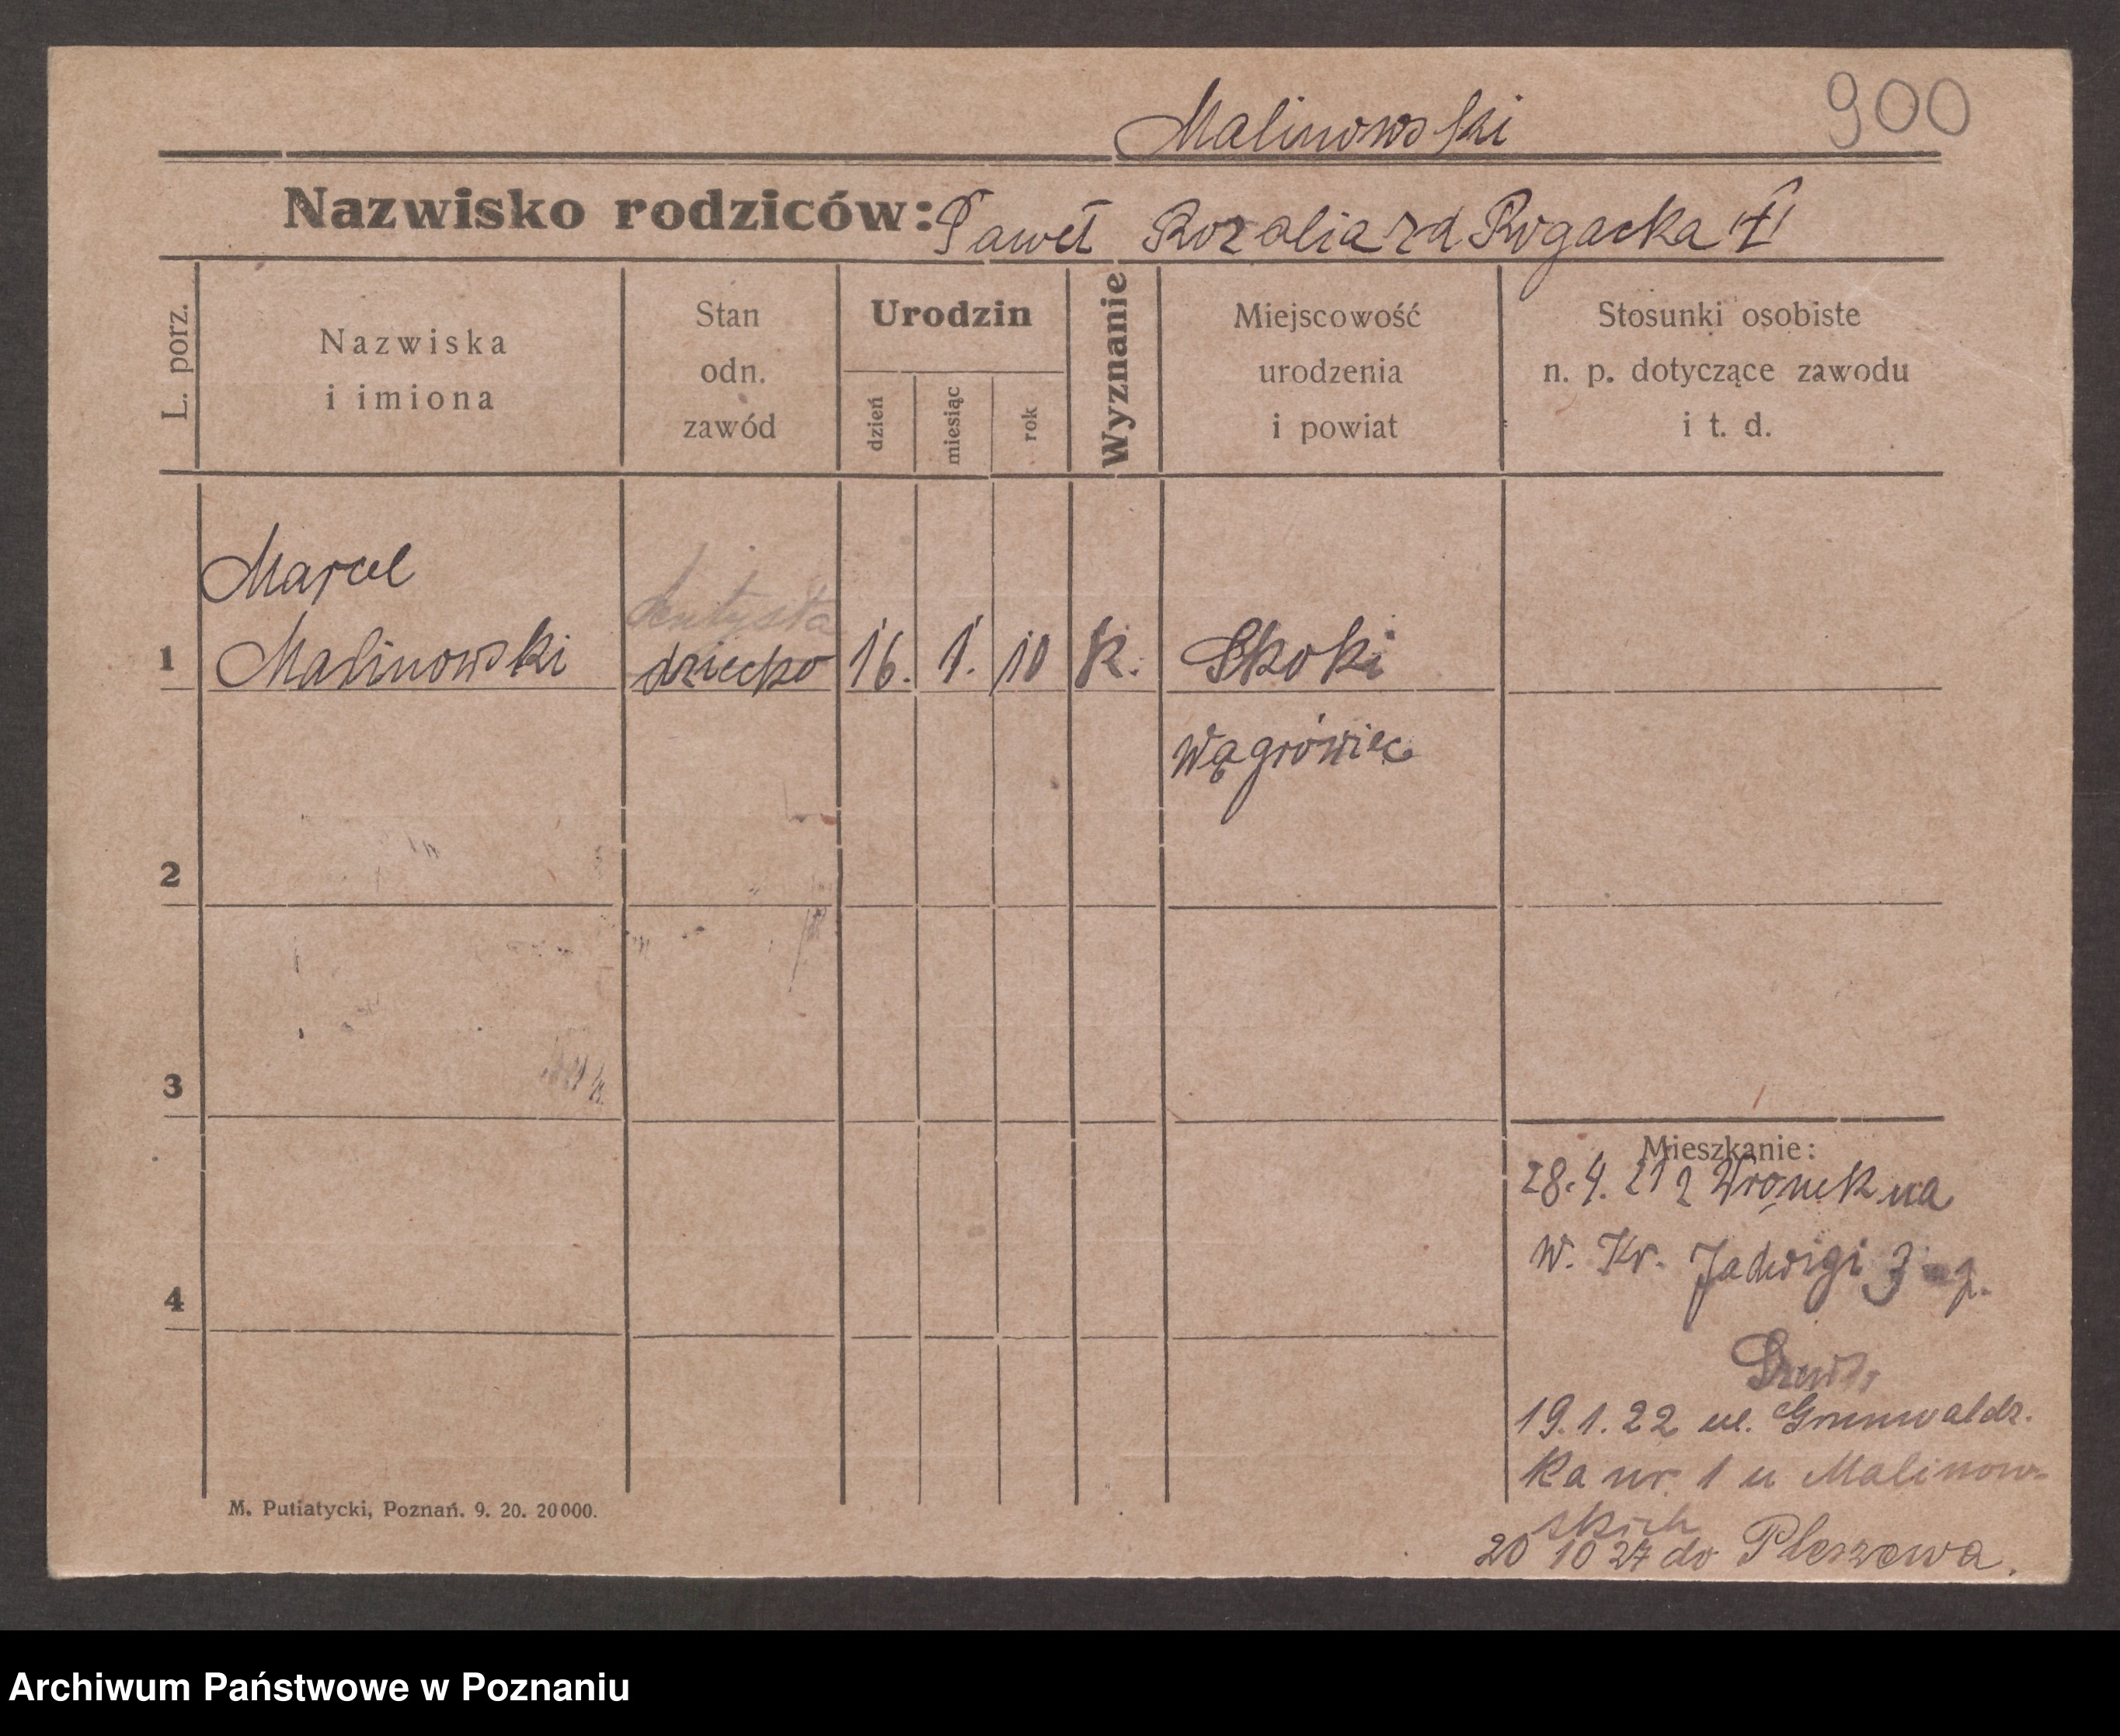 Malinowski
900
Nazwisko rodziców: Paweł Rozalia zd Rogacka
L. porz.
Nazwiska
i imiona
Stan
odn.
zawód
Urodzin
dzień
miesiąc
rok
Wyznanie
Miejscowość
urodzenia
i powiat
Stosunki osobiste
n. p. dotyczące zawodu
i t. d.
Marcel
dentysta
1 Malinowski dziecko 16. 1. 10 k. Skoki
Wągrówiec
2
3
Mieszkanie:
28.4.21 z Wronek na
W. Kr. Jadwigi 3
4
19.1.22 ul. Grunwaldz.
ka nr. 1 u Malinow-
skich
20 10 27 do Pleszewa.
M. Putiatycki, Poznań. 9. 20. 20000.
Archiwum Państwowe w Poznaniu